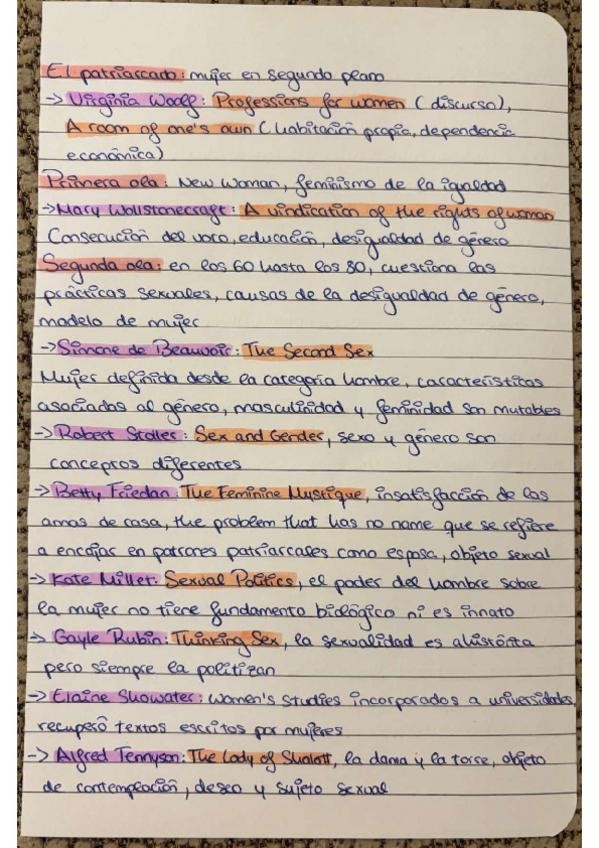 El patriarcado: mujer en segundo plano
-> Virginia Woolf: Professions for women (discurso),
A room of one's own (habitación propia, dependencia
económica)
Primera ola: New Woman, feminismo de la igualdad
-> Mary Wollstonecraft: A vindication of the rights of woman
Consecución del voto, educación, desigualdad de género
Segunda ola: en los 60 hasta los 80, cuestiona las
prácticas sexuales, causas de la desigualdad de género,
modelo de mujer
-> Simone de Beauvoir: The Second Sex
Mujer definida desde la categoría hombre, características
asociadas al género, masculinidad y feminidad son mutables
-> Robert Stoller: Sex and Gender, sexo y género son
conceptos diferentes
-> Betty Friedan: The Feminine Mystique, insatisfacción de las
amas de casa, the problem that has no name que se refiere
a encajar en patrones patriarcales como esposa, objeto sexual
-> Kate Millet: Sexual Politics, el poder del hombre sobre
la mujer no tiene fundamento biológico ni es innato
-> Gayle Rubin: Thinking Sex, la sexualidad es ahistórica
pero siempre la politizan
-> Elaine Showater: Women's Studies incorporados a universidades,
recuperó textos escritos por mujeres
-> Alfred Tennyson: The Lady of Shalott, la dama y la torre, objeto
de contemplación, deseo y sujeto sexual